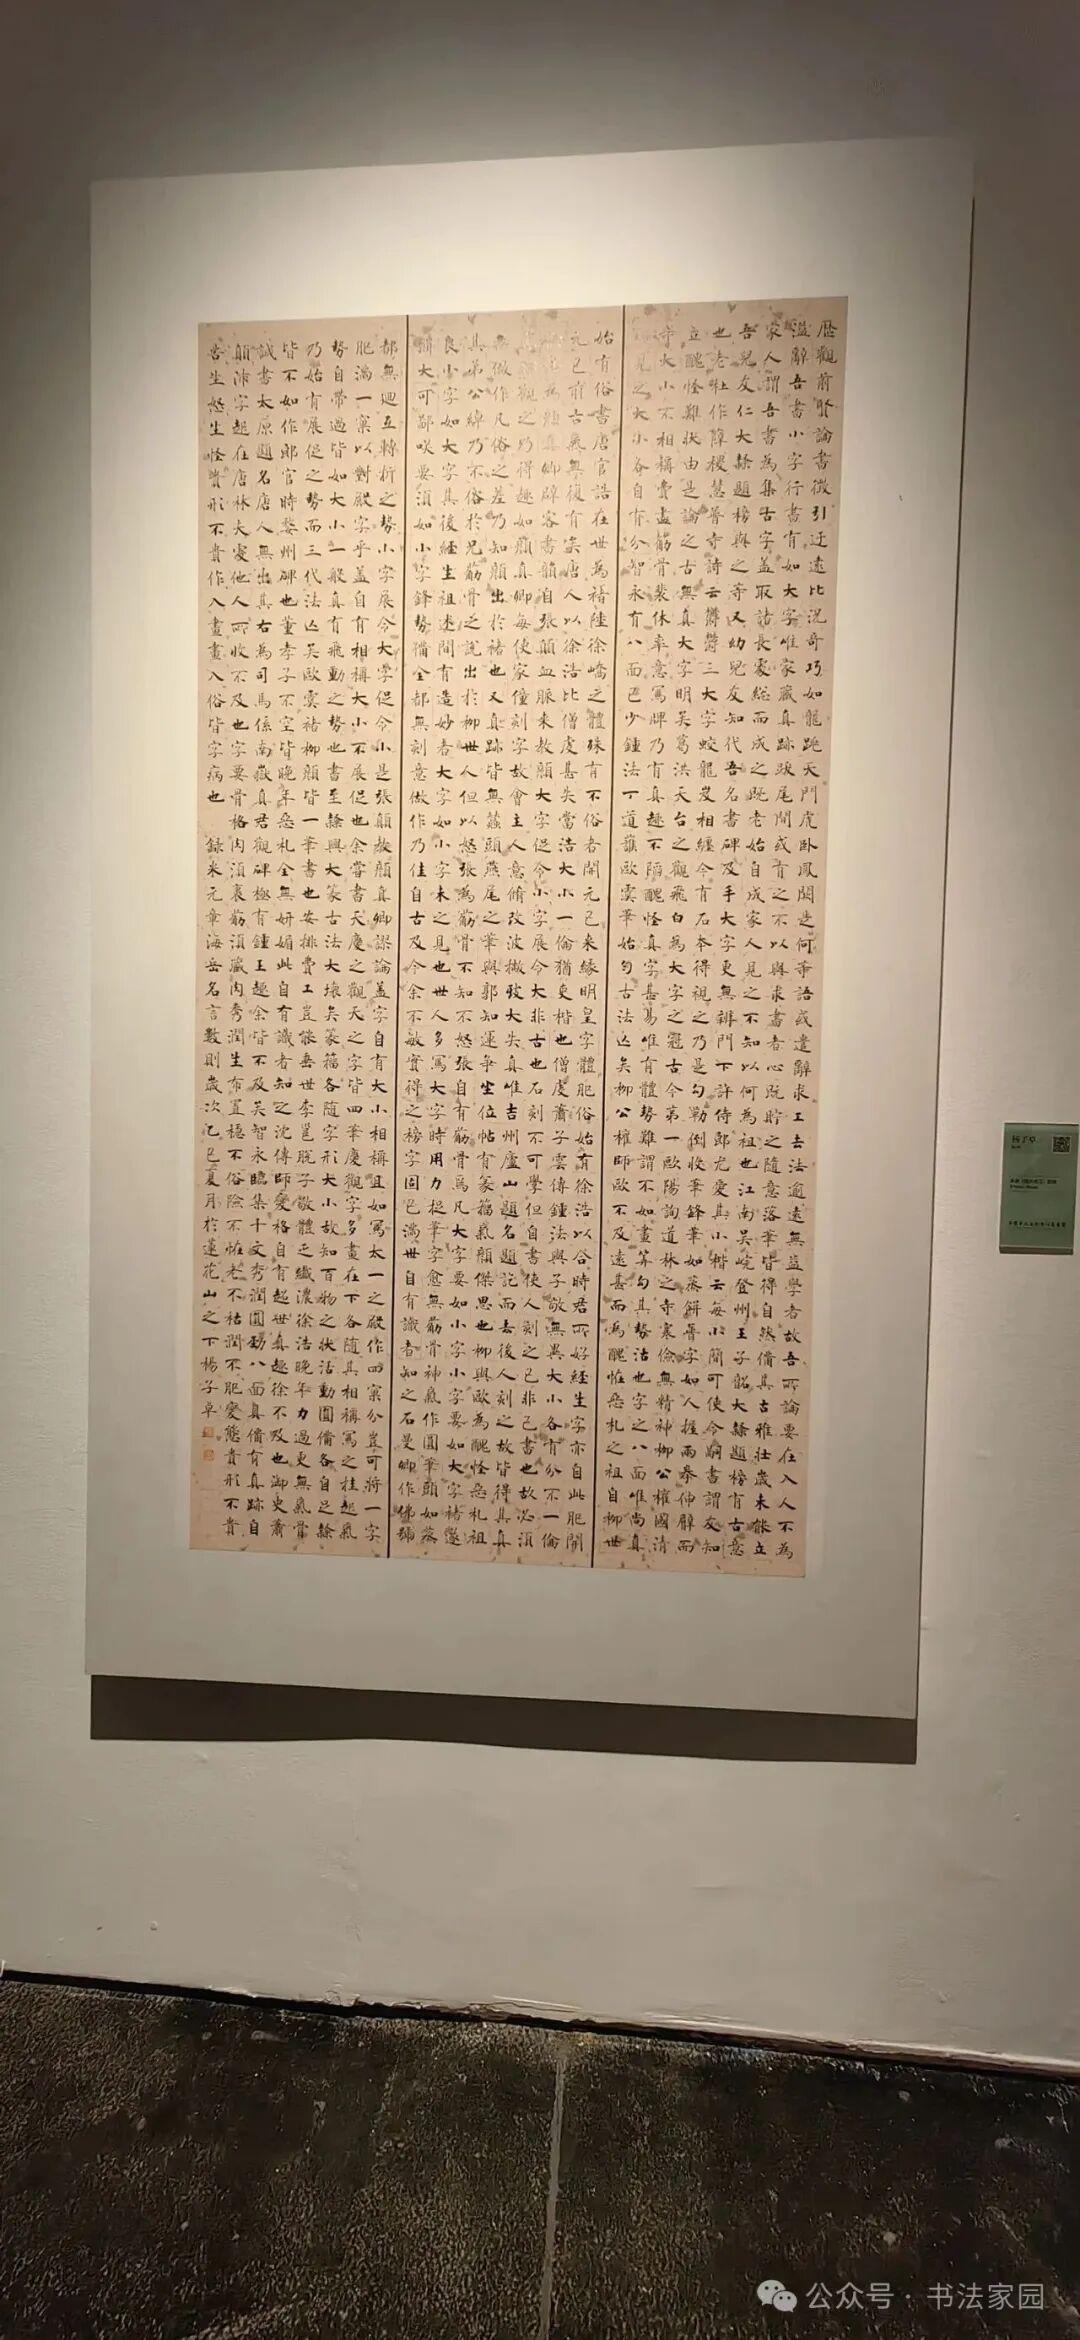 歷觀前賢論書徵引迂遠比況奇巧如龍跳天門虎臥鳳闕是何等語或遣辭求工去法逾遠無益學者故吾所論要在入人不為
溢辭吾書小字行書有如大字唯家藏真跡跋尾間或有之不以與求書者心既貯之隨意落筆皆得自然備其古雅壯歲未能立
家人謂吾書為集古字蓋取諸長處總而成之既老始自成家人見之不知以何為祖也江南吳皖登州王子韶大隸題榜有古意
吾兒友仁大隸題榜與之等又幼兒友知代吾名書碑及手大字更無辨門下許侍郎尤愛其小楷云每小簡可使令嗣書謂友知
也老杜作薛稷慧普寺詩云鬱鬱三大字蛟龍岌相纏今有石本得視之乃是勾勒倒收筆鋒筆如蒸餅普字如人握兩拳伸臂而
立醜怪難狀由是論之古無真大字明矣葛洪天台之觀飛白為大字之冠古今第一歐陽詢道林之寺寒儉無精神柳公權國清
寺大小不相稱費盡筋骨裴休率意寫牌乃有真趣不陷醜怪真字甚易唯有體勢難謂不如畫算勻其勢活也字之八面唯尚真
見之大小各自有分智永有八面已少鍾法丁道護歐虞筆始勻古法亡矣柳公權師歐不及遠甚而為醜怪惡札之祖自柳世
始有俗書唐官誥在世為褚陸徐嶠之體殊有不俗者開元已來緣明皇字體肥俗始有徐浩以合時君所好經生字亦自此肥開
元已前古氣無復有矣唐人以徐浩比僧虔甚失當浩大小一倫猶吏楷也僧虔蕭子雲傳鍾法與子敬無異大小各有分不一倫
為顏真卿辟客書韻自張顛血脈來教顏大字促令小字展令大非古也石刻不可學但自書使人刻之已非己書也故必須
觀之乃得趣如顏真卿每使家僮刻字故會主人意脩改波撇致大失真唯吉州廬山題名題訖而去後人刻之故皆得其真
無做作凡俗之差乃知顏出於褚也又真跡皆無蠶頭燕尾之筆與郭知運爭坐位帖有篆籀氣顏傑思也柳與歐為醜怪惡札祖
其弟公綽乃不俗於兄筋骨之說出於柳世人但以怒張為筋骨不知不怒張自有筋骨焉凡大字要如小字小字要如大字褚遂
良小字如大字其後經生祖述間有造妙者大字如小字未之見也世人多寫大字時用力捉筆字愈無筋骨神氣作圓筆頭如蒸
餅大可鄙咲要須如小字鋒勢備全都無刻意做作乃佳自古及今余不敏實得之榜字固已滿世自有識者知之石曼卿作佛號
都無迴互轉折之勢小字展令大字促令小是張顛教顏真卿謬論蓋字自有大小相稱且如寫太一之殿作四窠分豈可將一字
肥滿一窠以對殿字乎蓋自有相稱大小不展促也余嘗書天慶之觀天之字皆四筆慶觀字多畫在下各隨其相稱寫之挂起氣
勢自帶過皆如大小一般真有飛動之勢也書至隸興大篆古法大壞矣篆籀各隨字形大小故知百物之狀活動圓備各自足隸
乃始有展促之勢而三代法亡矣歐虞褚柳顏皆一筆書也安排費工豈能垂世李邕脫子敬體乏纖濃徐浩晚年力過更無氣骨
皆不如作郎官時婺州碑也董孝子不空皆晚年惡札全無妍媚此自有識者知之沈傳師變格自有超世真趣徐不及也御史蕭
誠書太原題名唐人無出其右為司馬係南嶽真君觀碑極有鍾王趣余皆不及矣智永臨集千文秀潤圓勁八面具備有真跡自
顛沛字起在唐林夫處他人所收不及也字要骨格肉須裹筋須藏肉秀潤生布置穩不俗險不怪老不枯潤不肥變態貴形不貴
苦生怒生怪貴形不貴作入畫畫入俗皆字病也 錄米元章海岳名言數則歲次乙巳夏月於蓮花山之下楊子卓
杨子卓
公众号·书法家园